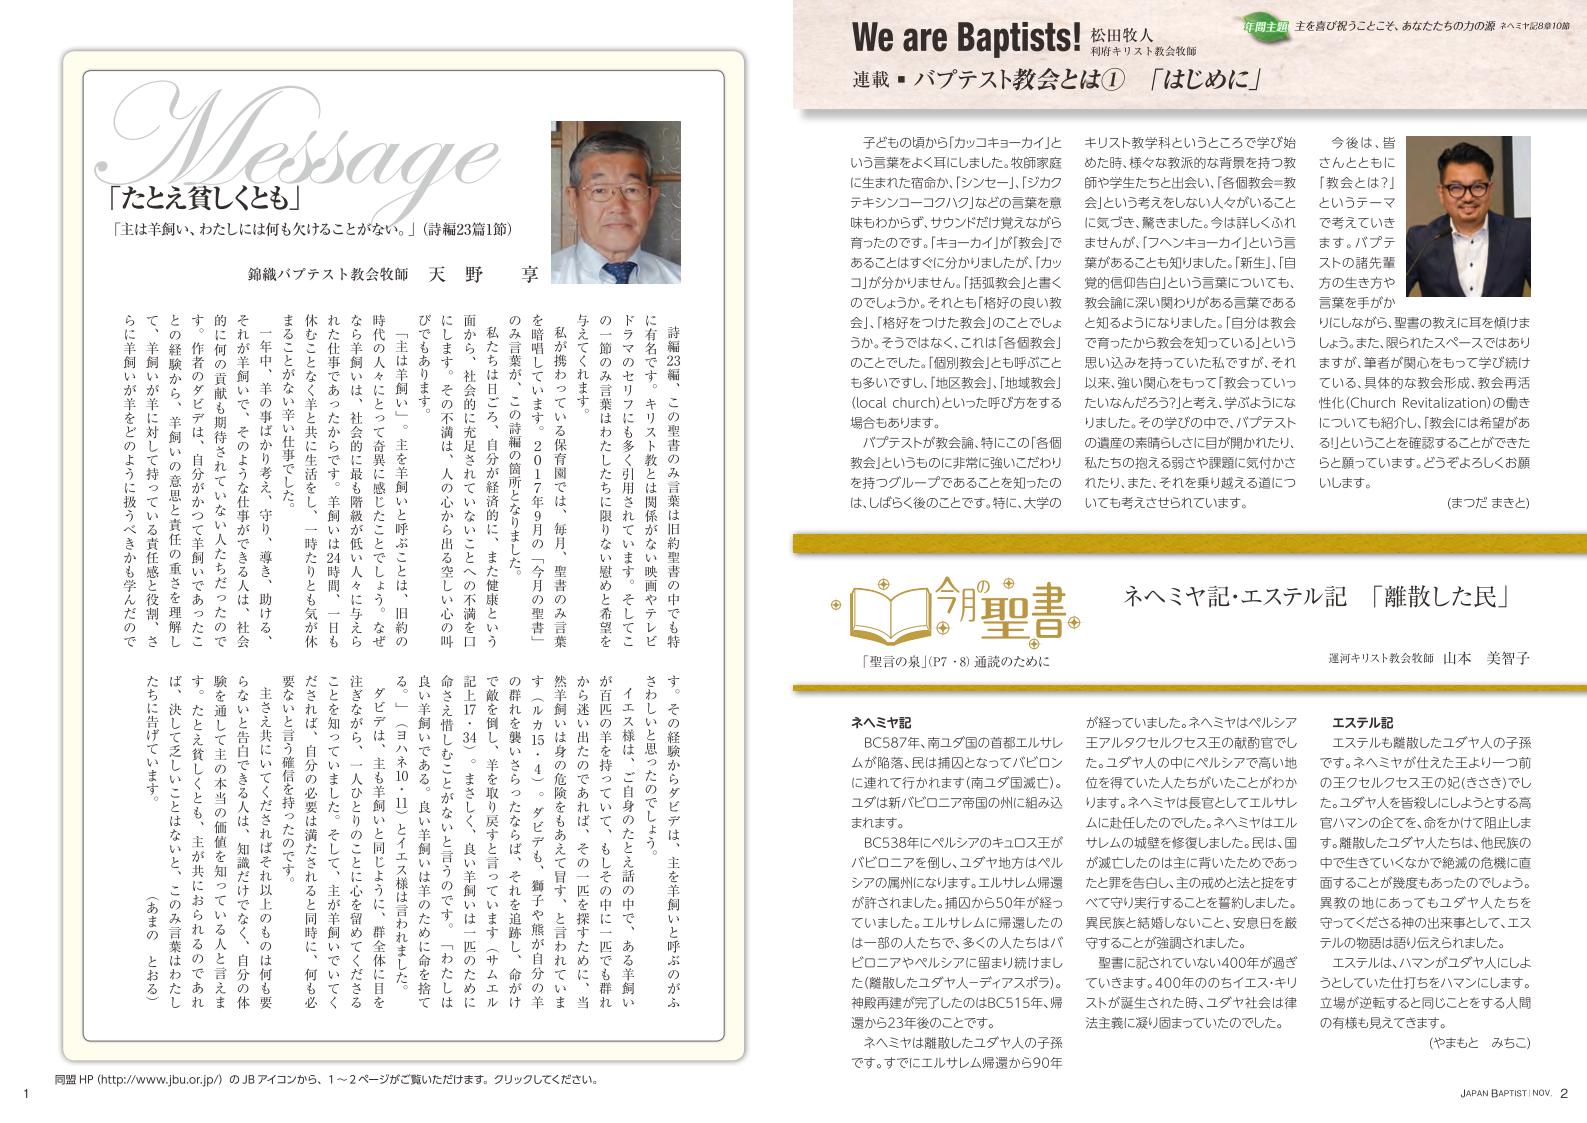 Message
「たとえ貧しくとも」
「主は羊飼い、わたしには何も欠けることがない。」（詩編23篇1節）
錦織バプテスト教会牧師　天 野　享
詩編23編、この聖書のみ言葉は旧約聖書の中でも特
に有名です。キリスト教とは関係がない映画やテレビ
ドラマのセリフにも多く引用されています。そしてこ
の一節のみ言葉はわたしたちに限りない慰めと希望を
与えてくれます。
私が携わっている保育園では、毎月、聖書のみ言葉
を暗唱しています。2017年9月の「今月の聖書」
のみ言葉が、この詩編の箇所となりました。
私たちは日ごろ、自分が経済的に、また健康という
面から、社会的に充足されていないことへの不満を口
にします。その不満は、人の心から出る空しい心の叫
びでもあります。
「主は羊飼い」。主を羊飼いと呼ぶことは、旧約の
時代の人々にとって奇異に感じたことでしょう。なぜ
なら羊飼いは、社会的に最も階級が低い人々に与えら
れた仕事であったからです。羊飼いは24時間、一日も
休むことなく羊と共に生活をし、一時たりとも気が休
まることがない辛い仕事でした。
一年中、羊の事ばかり考え、守り、導き、助ける、
それが羊飼いで、そのような仕事ができる人は、社会
的に何の貢献も期待されていない人たちだったので
す。作者のダビデは、自分がかつて羊飼いであったこ
との経験から、羊飼いの意思と責任の重さを理解し
て、羊飼いが羊に対して持っている責任感と役割、さ
らに羊飼いが羊をどのように扱うべきかも学んだので
す。その経験からダビデは、主を羊飼いと呼ぶのがふ
さわしいと思ったのでしょう。
イエス様は、ご自身のたとえ話の中で、ある羊飼い
が百匹の羊を持っていて、もしその中に一匹でも群れ
から迷い出たのであれば、その一匹を探すために、当
然羊飼いは身の危険をもあえて冒す、と言われていま
す（ルカ15・4）。ダビデも、獅子や熊が自分の羊
の群れを襲いさらったならば、それを追跡し、命がけ
で敵を倒し、羊を取り戻すと言っています（サムエル
記上17・34）。まさしく、良い羊飼いは一匹のために
命さえ惜しむことがないと言うのです。「わたしは
良い羊飼いである。良い羊飼いは羊のために命を捨て
る。」（ヨハネ10・11）とイエス様は言われました。
ダビデは、主も羊飼いと同じように、群全体に目を
注ぎながら、一人ひとりのことに心を留めてくださる
ことを知っていました。そして、主が羊飼いでいてく
だされば、自分の必要は満たされると同時に、何も必
要ないと言う確信を持ったのです。
主さえ共にいてくださればそれ以上のものは何も要
らないと告白できる人は、知識だけでなく、自分の体
験を通して主の本当の価値を知っている人と言えま
す。たとえ貧しくとも、主が共におられるのであれ
ば、決して乏しいことはないと、このみ言葉はわたし
たちに告げています。
（あまの　とおる）
同盟 HP（http://www.jbu.or.jp/）の JB アイコンから、1～2 ページがご覧いただけます。クリックしてください。
1
We are Baptists!
松田牧人
利府キリスト教会牧師
年間主題 主を喜び祝うことこそ、あなたたちの力の源 ネヘミヤ記8章10節
連載 ■ バプテスト教会とは①　「はじめに」
子どもの頃から「カッコキョーカイ」と
いう言葉をよく耳にしました。牧師家庭
に生まれた宿命か、「シンセー」、「ジカク
テキシンコーコクハク」などの言葉を意
味もわからず、サウンドだけ覚えながら
育ったのです。「キョーカイ」が「教会」で
あることはすぐに分かりましたが、「カッ
コ」が分かりません。「括弧教会」と書く
のでしょうか。それとも「格好の良い教
会」、「格好をつけた教会」のことでしょ
うか。そうではなく、これは「各個教会」
のことでした。「個別教会」とも呼ぶこと
も多いですし、「地区教会」、「地域教会」
(local church)といった呼び方をする
場合もあります。
バプテストが教会論、特にこの「各個
教会」というものに非常に強いこだわり
を持つグループであることを知ったの
は、しばらく後のことです。特に、大学の
キリスト教学科というところで学び始
めた時、様々な教派的な背景を持つ教
師や学生たちと出会い、「各個教会=教
会」という考えをしない人々がいること
に気づき、驚きました。今は詳しくふれ
ませんが、「フヘンキョーカイ」という言
葉があることも知りました。「新生」、「自
覚的信仰告白」という言葉についても、
教会論に深い関わりがある言葉である
と知るようになりました。「自分は教会
で育ったから教会を知っている」という
思い込みを持っていた私ですが、それ
以来、強い関心をもって「教会っていっ
たいなんだろう?」と考え、学ぶようにな
りました。その学びの中で、バプテスト
の遺産の素晴らしさに目が開かれたり、
私たちの抱える弱さや課題に気付かさ
れたり、また、それを乗り越える道につ
いても考えさせられています。
今後は、皆
さんとともに
「教会とは?」
というテーマ
で考えていき
ます。バプテ
ストの諸先輩
方の生き方や
言葉を手がか
りにしながら、聖書の教えに耳を傾けま
しょう。また、限られたスペースではあり
ますが、筆者が関心をもって学び続け
ている、具体的な教会形成、教会再活
性化(Church Revitalization)の働き
についても紹介し、「教会には希望があ
る!」ということを確認することができた
らと願っています。どうぞよろしくお願
いします。
(まつだ まきと)
今月の聖書
「聖言の泉」(P7・8) 通読のために
ネヘミヤ記・エステル記　「離散した民」
運河キリスト教会牧師　山本　美智子
ネヘミヤ記
BC587年、南ユダ国の首都エルサレ
ムが陥落、民は捕囚となってバビロン
に連れて行かれます(南ユダ国滅亡)。
ユダは新バビロニア帝国の州に組み込
まれます。
BC538年にペルシアのキュロス王が
バビロニアを倒し、ユダヤ地方はペル
シアの属州になります。エルサレム帰還
が許されました。捕囚から50年が経っ
ていました。エルサレムに帰還したの
は一部の人たちで、多くの人たちはバ
ビロニアやペルシアに留まり続けまし
た(離散したユダヤ人ーディアスポラ)。
神殿再建が完了したのはBC515年、帰
還から23年後のことです。
ネヘミヤは離散したユダヤ人の子孫
です。すでにエルサレム帰還から90年
が経っていました。ネヘミヤはペルシア
王アルタクセルクセス王の献酌官でし
た。ユダヤ人の中にペルシアで高い地
位を得ていた人たちがいたことがわか
ります。ネヘミヤは長官としてエルサレ
ムに赴任したのでした。ネヘミヤはエル
サレムの城壁を修復しました。民は、国
が滅亡したのは主に背いたためであっ
たと罪を告白し、主の戒めと法と掟をす
べて守り実行することを誓約しました。
異民族と結婚しないこと、安息日を厳
守することが強調されました。
聖書に記されていない400年が過ぎ
ていきます。400年ののちイエス・キリ
ストが誕生された時、ユダヤ社会は律
法主義に凝り固まっていたのでした。
エステル記
エステルも離散したユダヤ人の子孫
です。ネヘミヤが仕えた王より一つ前
の王クセルクセス王の妃(きさき)でし
た。ユダヤ人を皆殺しにしようとする高
官ハマンの企てを、命をかけて阻止しま
す。離散したユダヤ人たちは、他民族の
中で生きていくなかで絶滅の危機に直
面することが幾度もあったのでしょう。
異教の地にあってもユダヤ人たちを
守ってくださる神の出来事として、エス
テルの物語は語り伝えられました。
エステルは、ハマンがユダヤ人にしよ
うとしていた仕打ちをハマンにします。
立場が逆転すると同じことをする人間
の有様も見えてきます。
(やまもと　みちこ)
JAPAN BAPTIST | NOV. 2